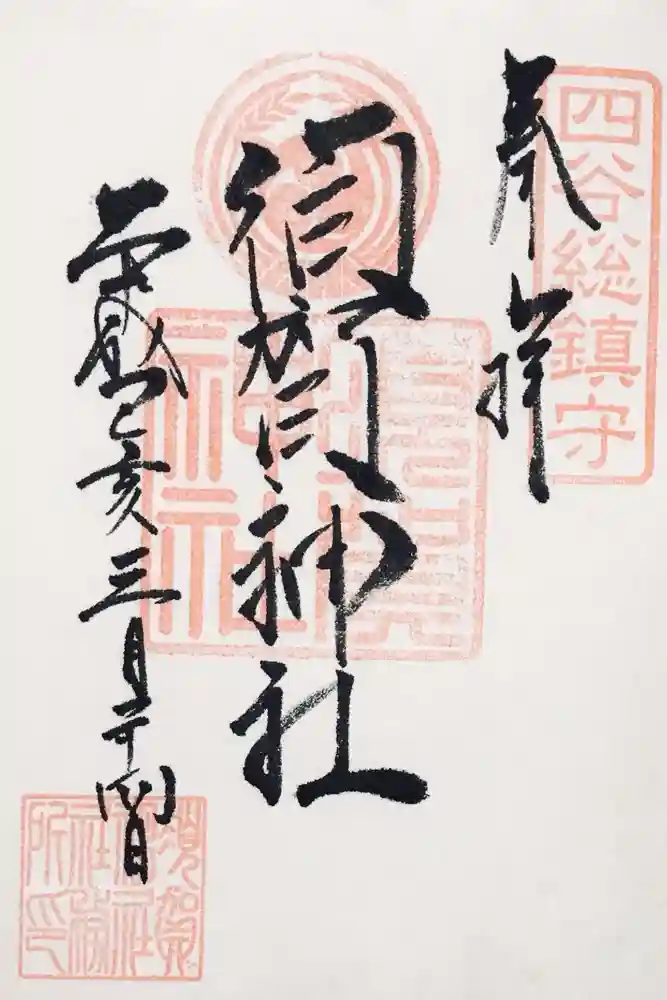 四谷総鎮守
奉拝
須賀神社
須賀神社
己亥三月
日
須賀神社社務所印